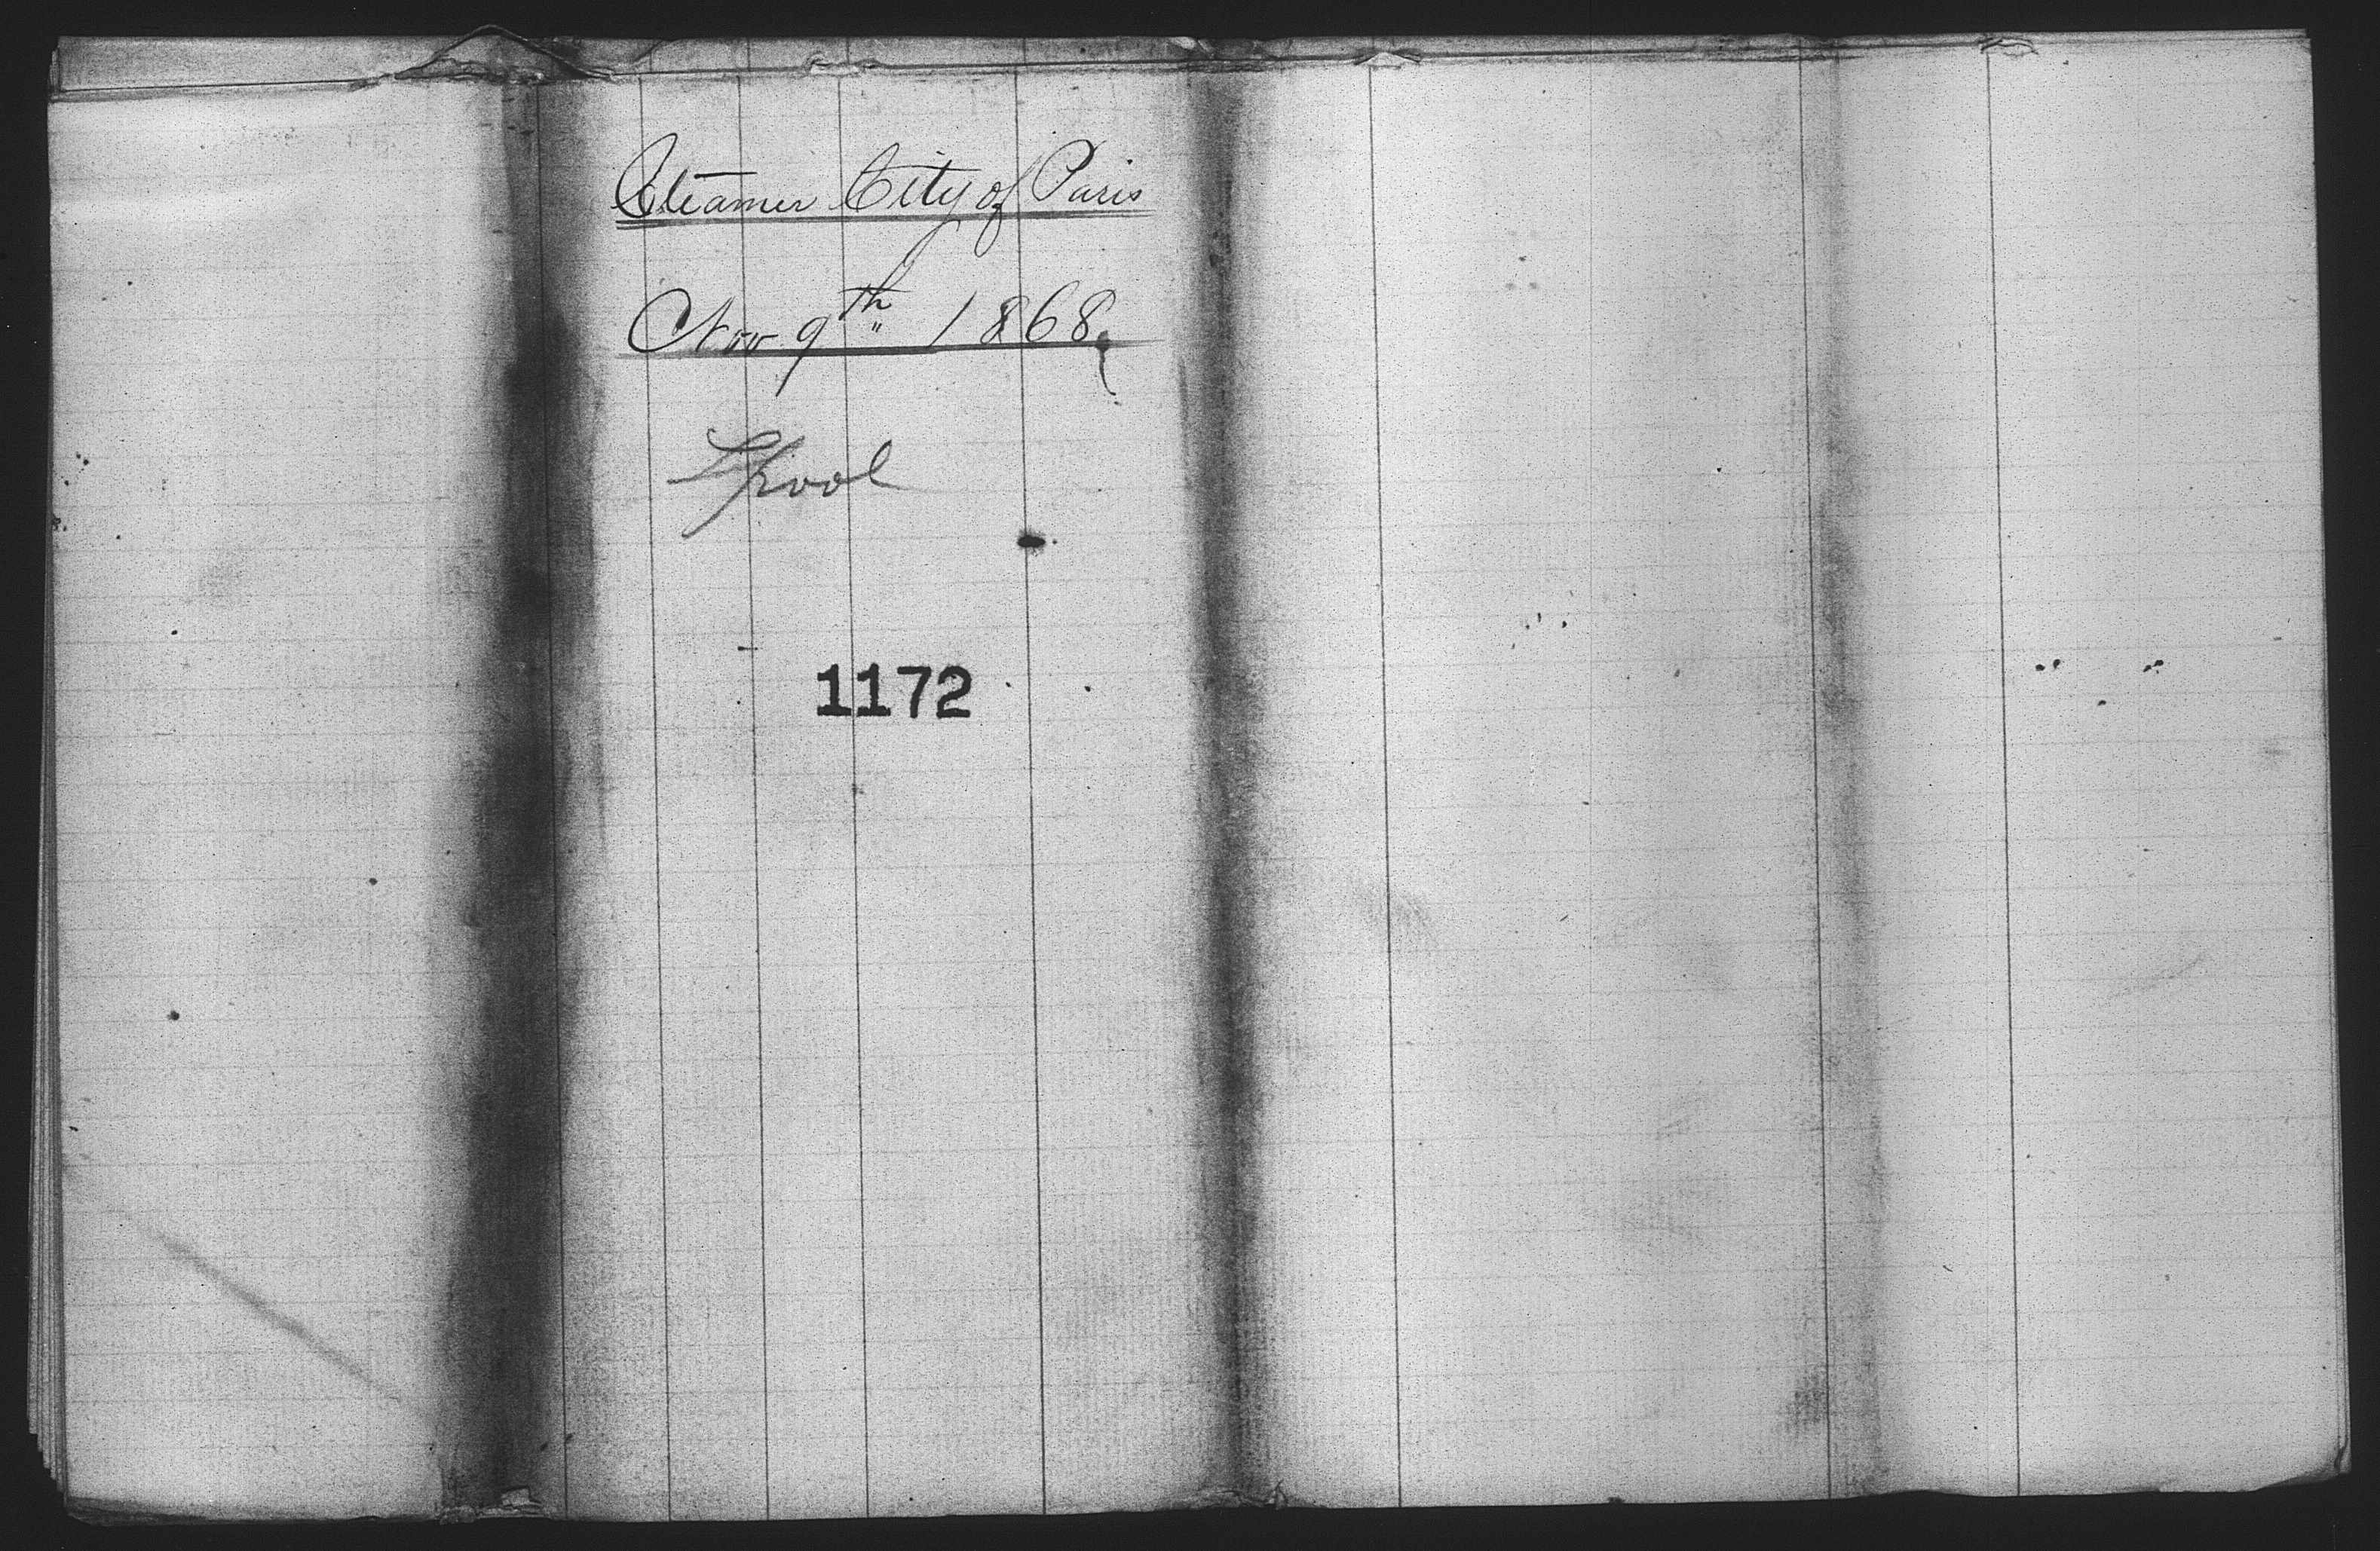 Steamer City of Paris
Nov 9th 1868
Lpool
1172